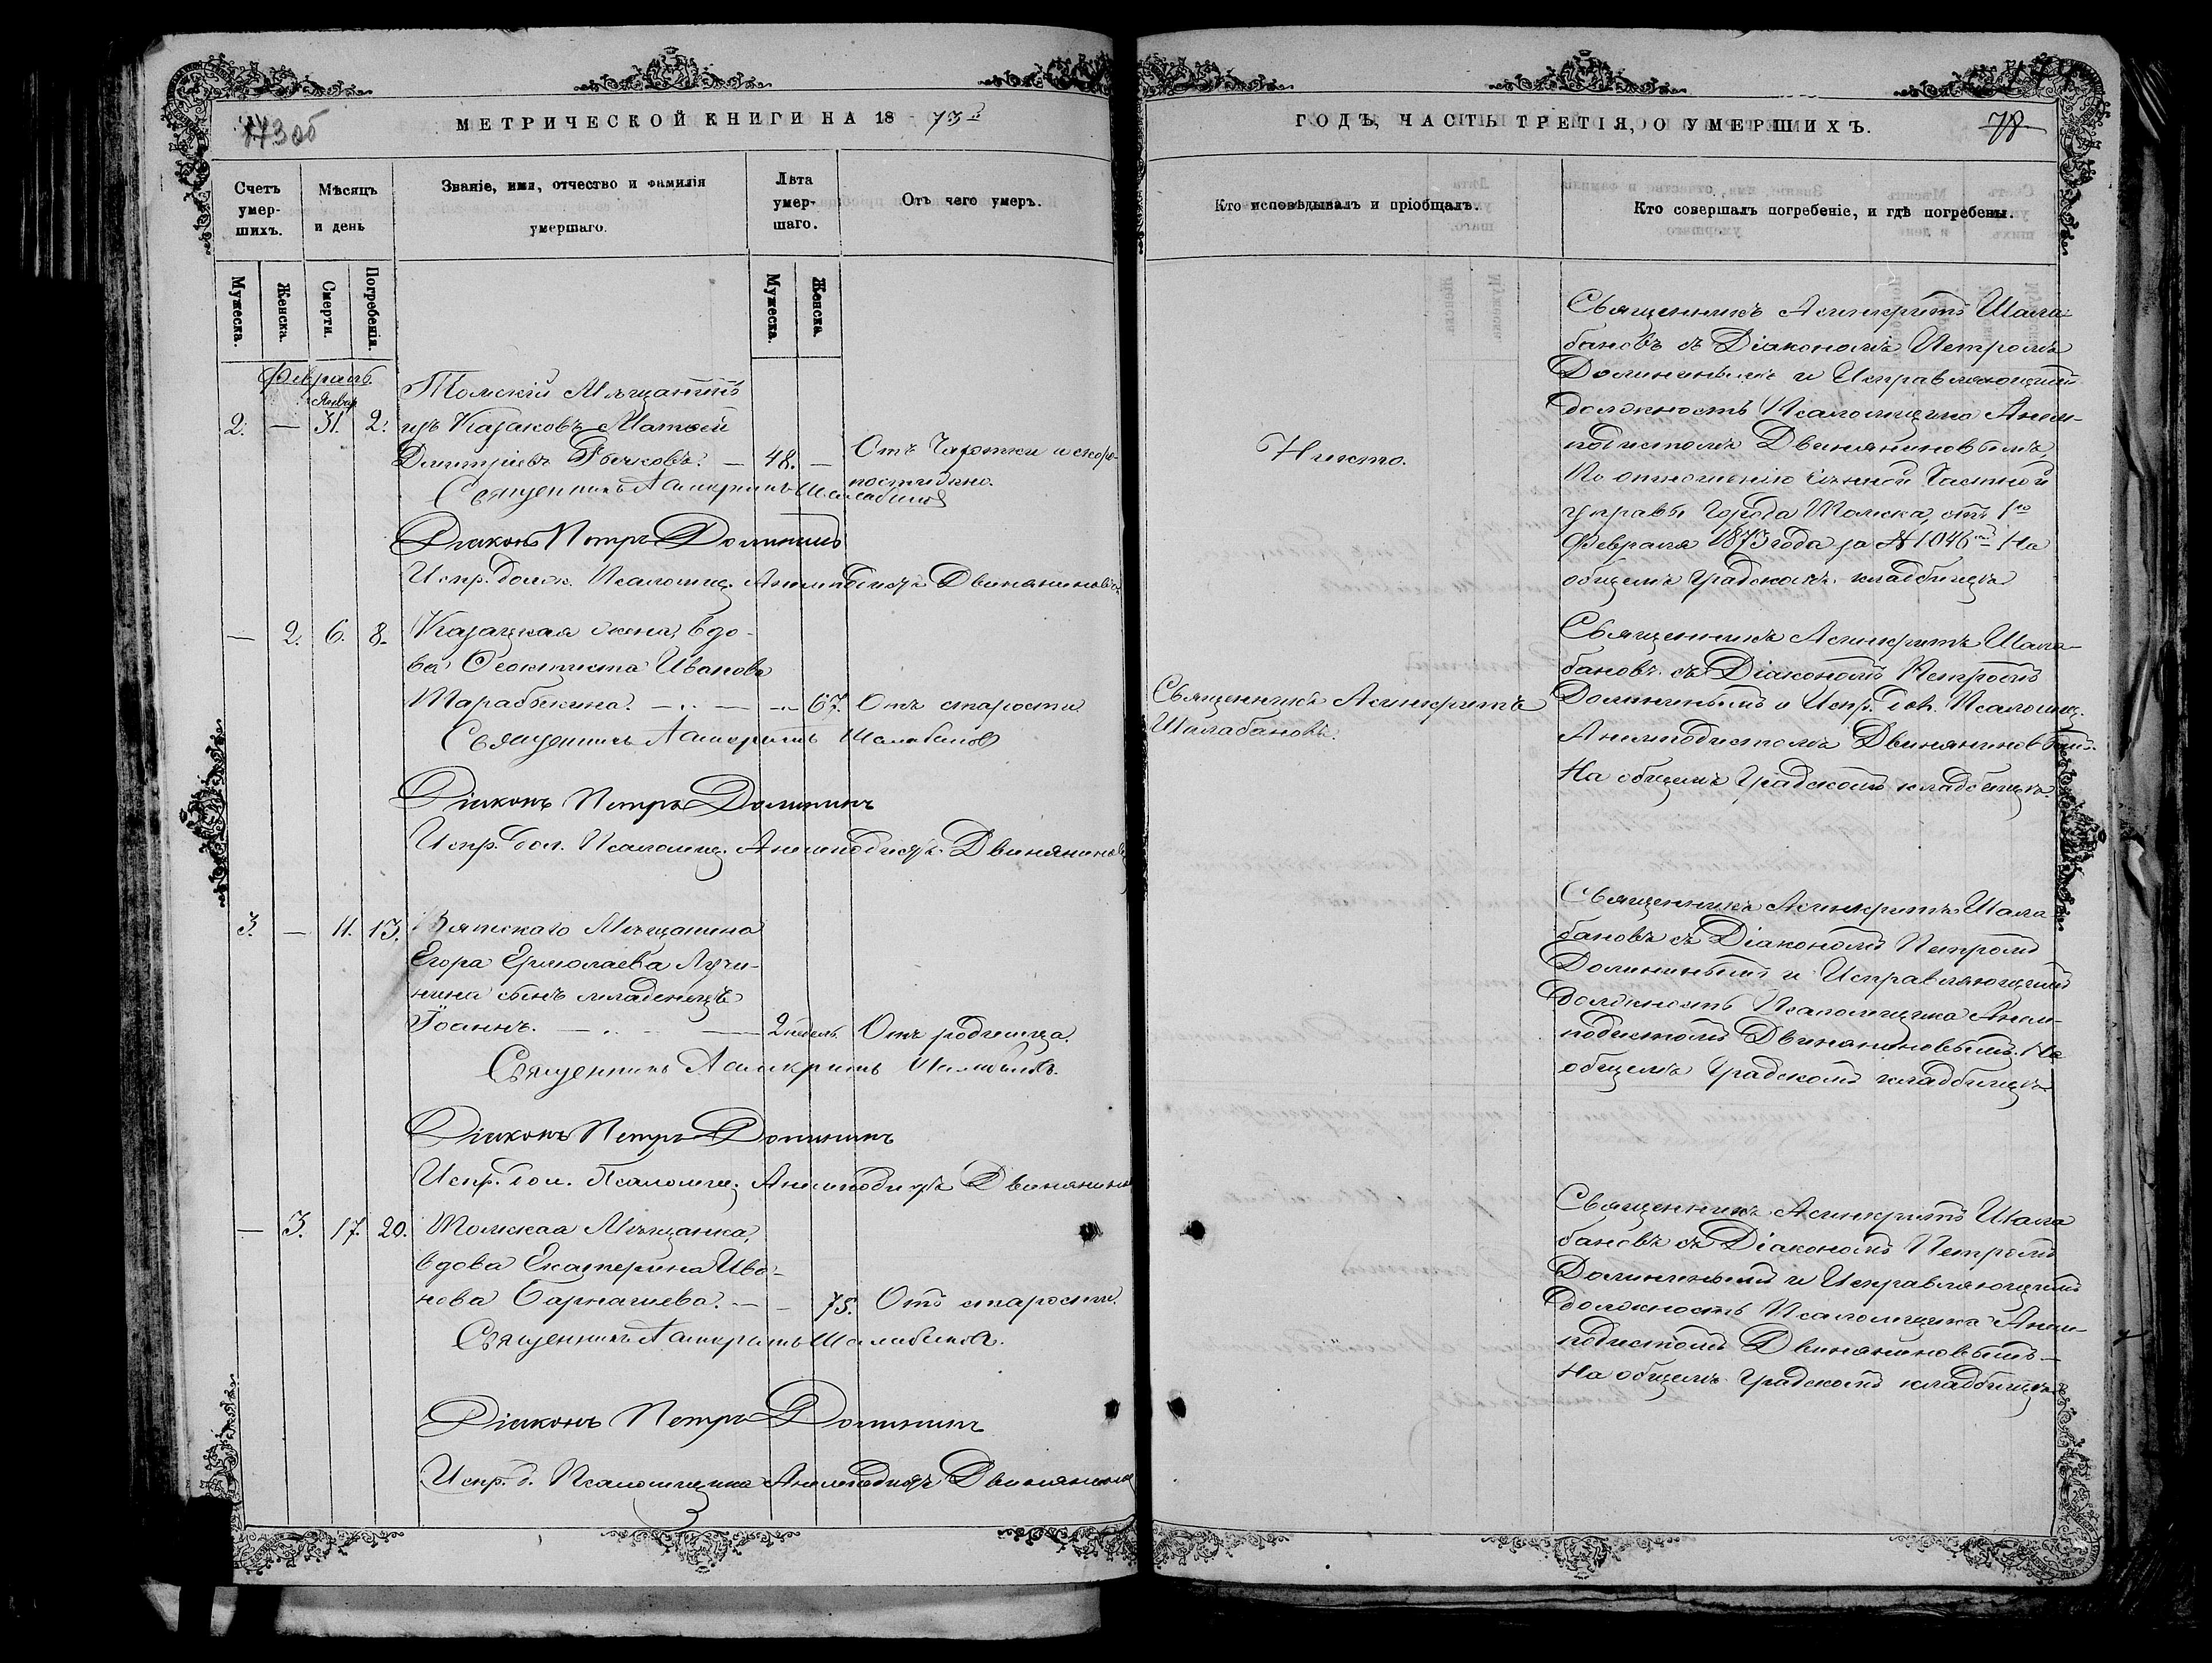 МЕТРИЧЕСКОЙ КНИГИ НА 1873й
ГОДЪ, ЧАСТЬ ТРЕТІЯ, О УМЕРШИХЪ.
78
Счетъ умер-шихъ.
Мѣсяцъ и день
Званіе, имя, отчество и фамилія умершаго.
Лѣта умер-шаго.
Отъ чего умеръ.
Кто исповѣдывалъ и пріобщалъ.
Кто совершалъ погребеніе, и гдѣ погребены.
Мужеска.
Женска.
Смерти.
Погребенія.
Мужеска.
Женска.
Февраль.
Январ.
2. — 31. 2.
Томскій Мѣщанинъ
изъ Казаковъ Матѳей
Дмитріевъ Бычковъ. — 48. —
Отъ Чахотки и скоро-
постижно.
Священникъ Асинкритъ Шалабановъ
Діаконъ Петръ Долининъ
Испр. долж. Псаломщ. Анемподистъ Двиняниновъ
Никто.
Священникъ Асинкритъ Шала-
бановъ съ Діакономъ Петромъ
Долининымъ и Исправляющимъ
должность Псаломщика Анем-
подистомъ Двиняниновымъ,
По отношенію Сѣнной Частной
управы Города Томска, отъ 1го
Февраля 1873 года за № 1046мъ На
общемъ Градскомъ кладбищѣ
— 2. 6. 8.
Казацкая жена, вдо-
ва Ѳеоктиста Иванова
Тарабыкина. — 67.
Отъ старости
Священникъ Асинкритъ Шалабановъ
Діаконъ Петръ Долининъ
Испр. дол. Псаломщ. Анемподистъ Двиняниновъ
Священникъ Асинкритъ
Шалабановъ.
Священникъ Асинкритъ Шала-
бановъ съ Діакономъ Петромъ
Долининымъ и Испр. дол. Псаломщ.
Анемподистомъ Двиняниновымъ.
На общемъ Градскомъ кладбищѣ.
3. — 11. 13.
Вятскаго Мѣщанина
Егора Ермолаева Лучи-
нина сынъ младенецъ
Іоаннъ. — 2 недѣль.
Отъ родимца.
Священникъ Асинкритъ Шалабановъ.
Діаконъ Петръ Долининъ
Испр. дол. Псаломщ. Анемподистъ Двинянинов
Священникъ Асинкритъ Шала
бановъ съ Діакономъ Петромъ
Долининымъ и Исправляющимъ
должность Псаломщика Анем-
подистомъ Двиняниновымъ. На
общемъ Градскомъ кладбищѣ
— 3. 17. 20.
Томская Мѣщанка,
вдова Екатерина Ива-
нова — 75.
Отъ старости.
Священникъ Асинкритъ Шалабановъ.
Діаконъ Петръ Долининъ
Испр. д. Псаломщика Анемподистъ Двинянинов
Священникъ Асинкритъ Шала
бановъ съ Діакономъ Петромъ
Долининымъ и Исправляющимъ
должность Псаломщика Анем-
подистомъ Двиняниновымъ —
На общемъ Градскомъ кладбищѣ